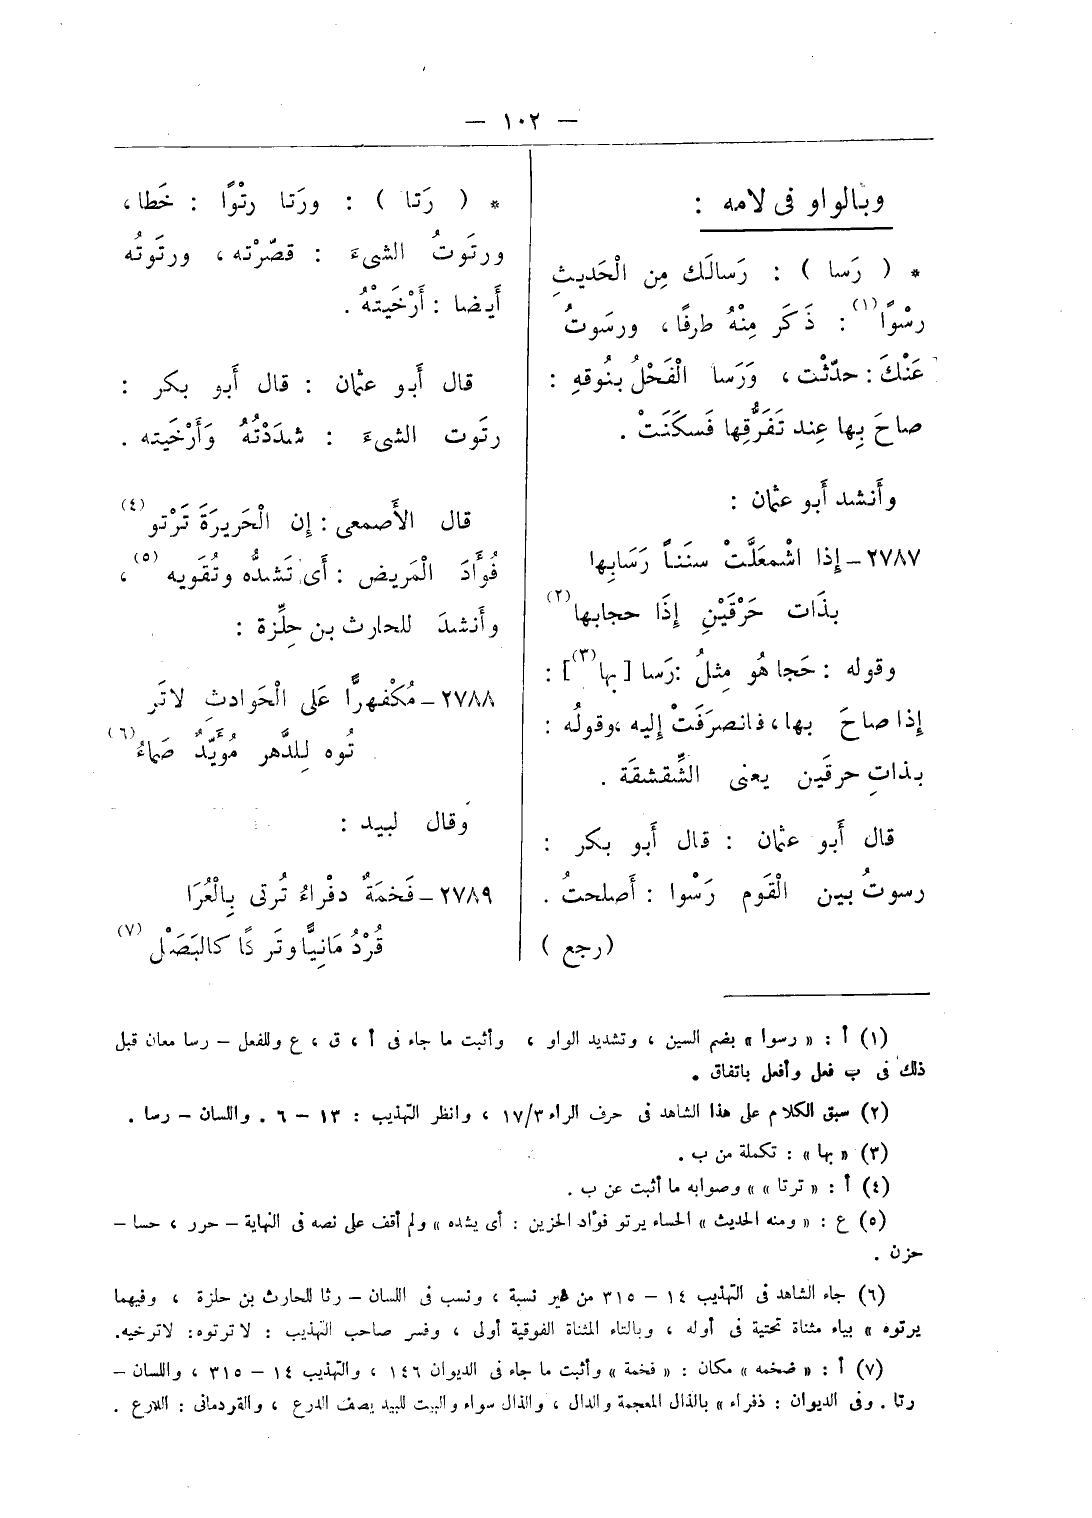 — ١٠٢ —
وبالواو فى لامه :
* ( رَسا ) : رَسالَك مِن الْحَديثِ
رسْوًا (١) : ذَكَر مِنْهُ طرفًا ، ورسَوتُ
عَنْكَ : حدّثْت ، وَرَسا الْفَحْلُ بنُوقهِ :
صاحَ بِها عِند تَفَرُّقِها فَسكَنَتْ .
وأَنشد أَبو عثمان :
٢٧٨٧ – إذا اشْمعَلَّتْ سنَناً رَسَابِها
بذَات حَرْقَيْنِ إذَا حجابها (٢)
وقوله : حَجا هُو مِثلُ : رَسا [ بها (٣) ] :
إذا صاحَ بها ، فانصرَفَتْ إليه ، وقولُه :
بذاتِ حرقَين يعنى الشِّقشقَة .
قال أَبو عثمان : قال أَبو بكر :
رسوتُ بين الْقَوم رَسْوا : أَصلحتُ .
(رجع )
* ( رَتا ) : ورَتا رتْوًا : خَطا ،
ورتَوتُ الشىءَ : قصّرْته ، ورتَوتُه
أَيضا : أَرْخَيتْهُ .
قال أَبو عثمان : قال أَبو بكر :
رتَوت الشىءَ : شدَدْتُهُ وَأَرْخَيته .
قال الأَصمعى : إن الْحَريرَةَ تَرْتو (٤)
فُوَّادَ الْمَريض : أَى تَشدُّه وتُقَويه (٥) ،
وأَنشدَ للحارث بن حلِّزة :
٢٧٨٨ – مُكْفهرًّا عَلى الْحَوادثِ لاتَر
تُوه لِلدَّهر مُؤَيّدٌ صَمّاءُ (٦)
وقال لبيد :
٢٧٨٩ – فَخمَةٌ دفْراءُ تُرتى بِالْعُرَا
قُرْدُمَانِيًّا وتَر كًا كالبَصَلْ (٧)
(١) أ : « رسوا » بضم السين ، وتشديد الواو ، وأثبت ما جاء فى أ ، ق ، ع وللفعل – رسا معان قبل
ذلك فى ب فعل وأفعل باتفاق .
(٢) سبق الكلام على هذا الشاهد فى حرف الراء ١٧/٣ ، وانظر التهذيب : ١٣ – ٦ . واللسان – رسا .
(٣) « بها » : تكملة من ب .
(٤) أ : « ترتا » » وصوابه ما أثبت عن ب .
(٥) ع : « ومنه الحديث » الحساء يرتو فؤاد الحزين : أى يشده » ولم أقف على نصه فى النهاية – حرر ، حسا –
حزن .
(٦) جاء الشاهد فى التهذيب ١٤ – ٣١٥ من غير نسبة ، ونسب فى اللسان – رتا للحارث بن حلزة ، وفيهما
يرتوه » بياء مثناة تحتية فى أوله ، وبالتاء المثناة الفوقية أولى ، وفسر صاحب التهذيب : لا ترتوه : لاترخيه.
(٧) أ : « ضخمه » مكان : « فخمة » وأثبت ما جاء فى الديوان ١٤٦ ، والتهذيب ١٤ – ٣١٥ ، واللسان –
رتا . وفى الديوان : ذفراء » بالذال المعجمة والدال ، والذال سواء والبيت للبيد يصف الدرع ، والقردمانى : اللارع .